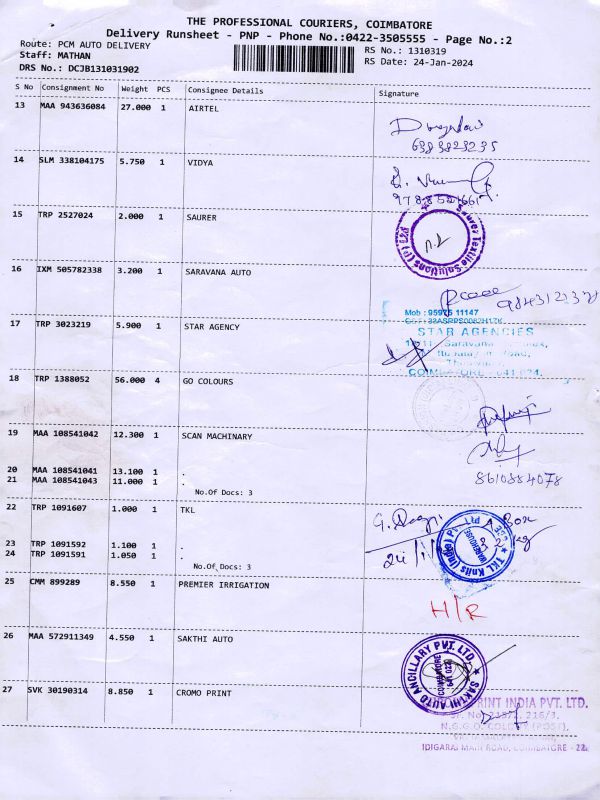 THE PROFESSIONAL COURIERS, COIMBATORE
Delivery Runsheet - PNP - Phone No.:0422-3505555 - Page No.:2
Route: PCM AUTO DELIVERY
RS No.: 1310319
Staff: MATHAN
RS Date: 24-Jan-2024
DRS No.: DCJB131031902
S No Consignment No Weight PCS Consignee Details Signature
13 MAA 943636084 27.000 1 AIRTEL
6383823235
14 SLM 338104175 5.750 1 VIDYA
15 TRP 2527024 2.000 1 SAURER
Saurer Textile Solutions (P) Ltd
16 IXM 505782338 3.200 1 SARAVANA AUTO
Mob : 95975 11147
17 TRP 3023219 5.900 1 STAR AGENCY
STAR AGENCIES
COIMBATORE - 641 024.
18 TRP 1388052 56.000 4 GO COLOURS
19 MAA 108541042 12.300 1 SCAN MACHINARY
20 MAA 108541041 13.100 1 .
21 MAA 108541043 11.000 1 .
8610884078
No.Of Docs: 3
22 TRP 1091607 1.000 1 TKL
23 TRP 1091592 1.100 1 .
24 TRP 1091591 1.050 1 .
No.Of Docs: 3
TKL Knits (India) P
WAREHOUSE
25 CMM 899289 8.550 1 PREMIER IRRIGATION
H/R
26 MAA 572911349 4.550 1 SAKTHI AUTO
SAKTHI AUTO ANCILLARY PVT. LTD.
COIMBATORE
27 SVK 30190314 8.850 1 CROMO PRINT
PRINT INDIA PVT. LTD.
IDIGARAI MAIN ROAD, COIMBATORE - 22.